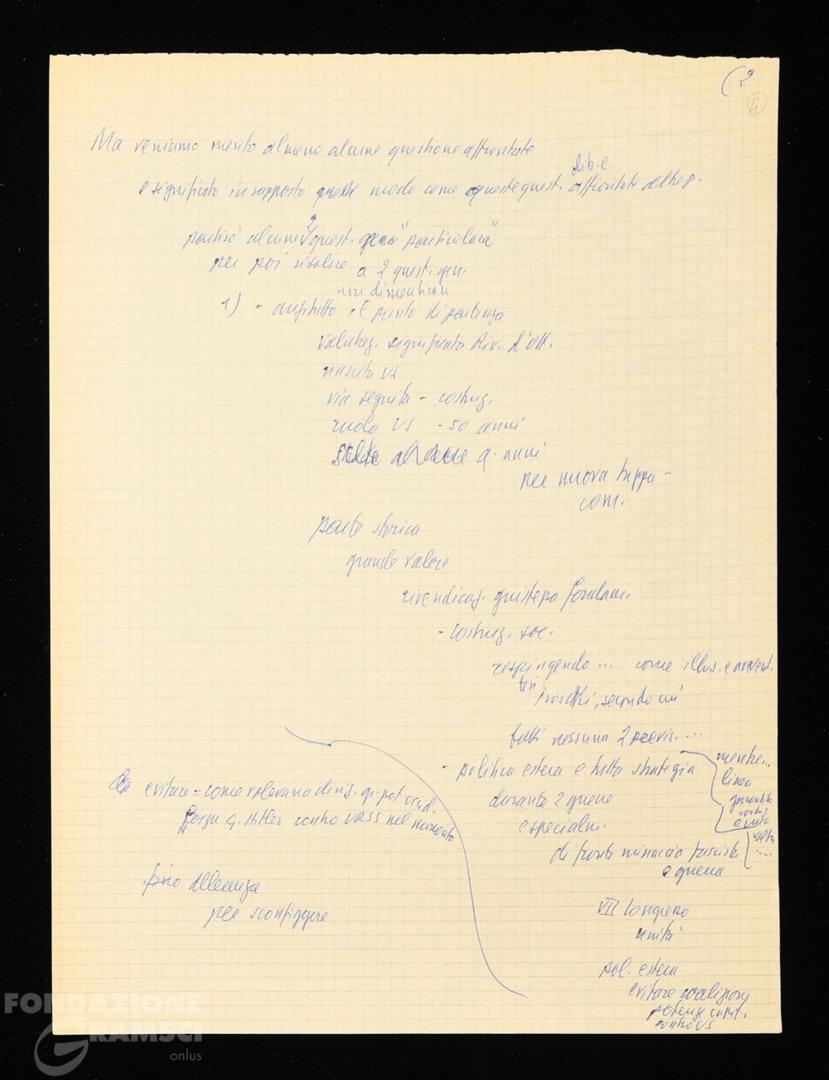 4
Ma veniamo merito almeno alcune questione affrontate
dib. e
e significato in rapporto modo come queste quest. affrontate
2
alcune quest. "particolari"
per poi risalire a 2 quest. gen.
non dimenticare
1) - anzitutto il punto di partenza
valutaz. significato Riv. d'Ott.
nascita US
via seguita - costruz.
ruolo US - 50 anni
anni
per nuova tappa -
com.
parte storica
grande valore
rivendicaz. giustezza fondam.
- costruz. soc.
respingendo ... come illus. e avvent.
secondo cui
tutti nessuna ...
- politica estera e tutta strategia
durante 2 guerre
especialm.
di fronte minaccia fascista
e guerra
mentre...
linea
evitare - come volevano
G. Hitler contro URSS nel momento
fino alleanza
per sconfiggere
VII Congresso
unità
pol. estera
evitare coalizione
potenze capit.
contro US
FONDAZIONE
GRAMSCI
onlus